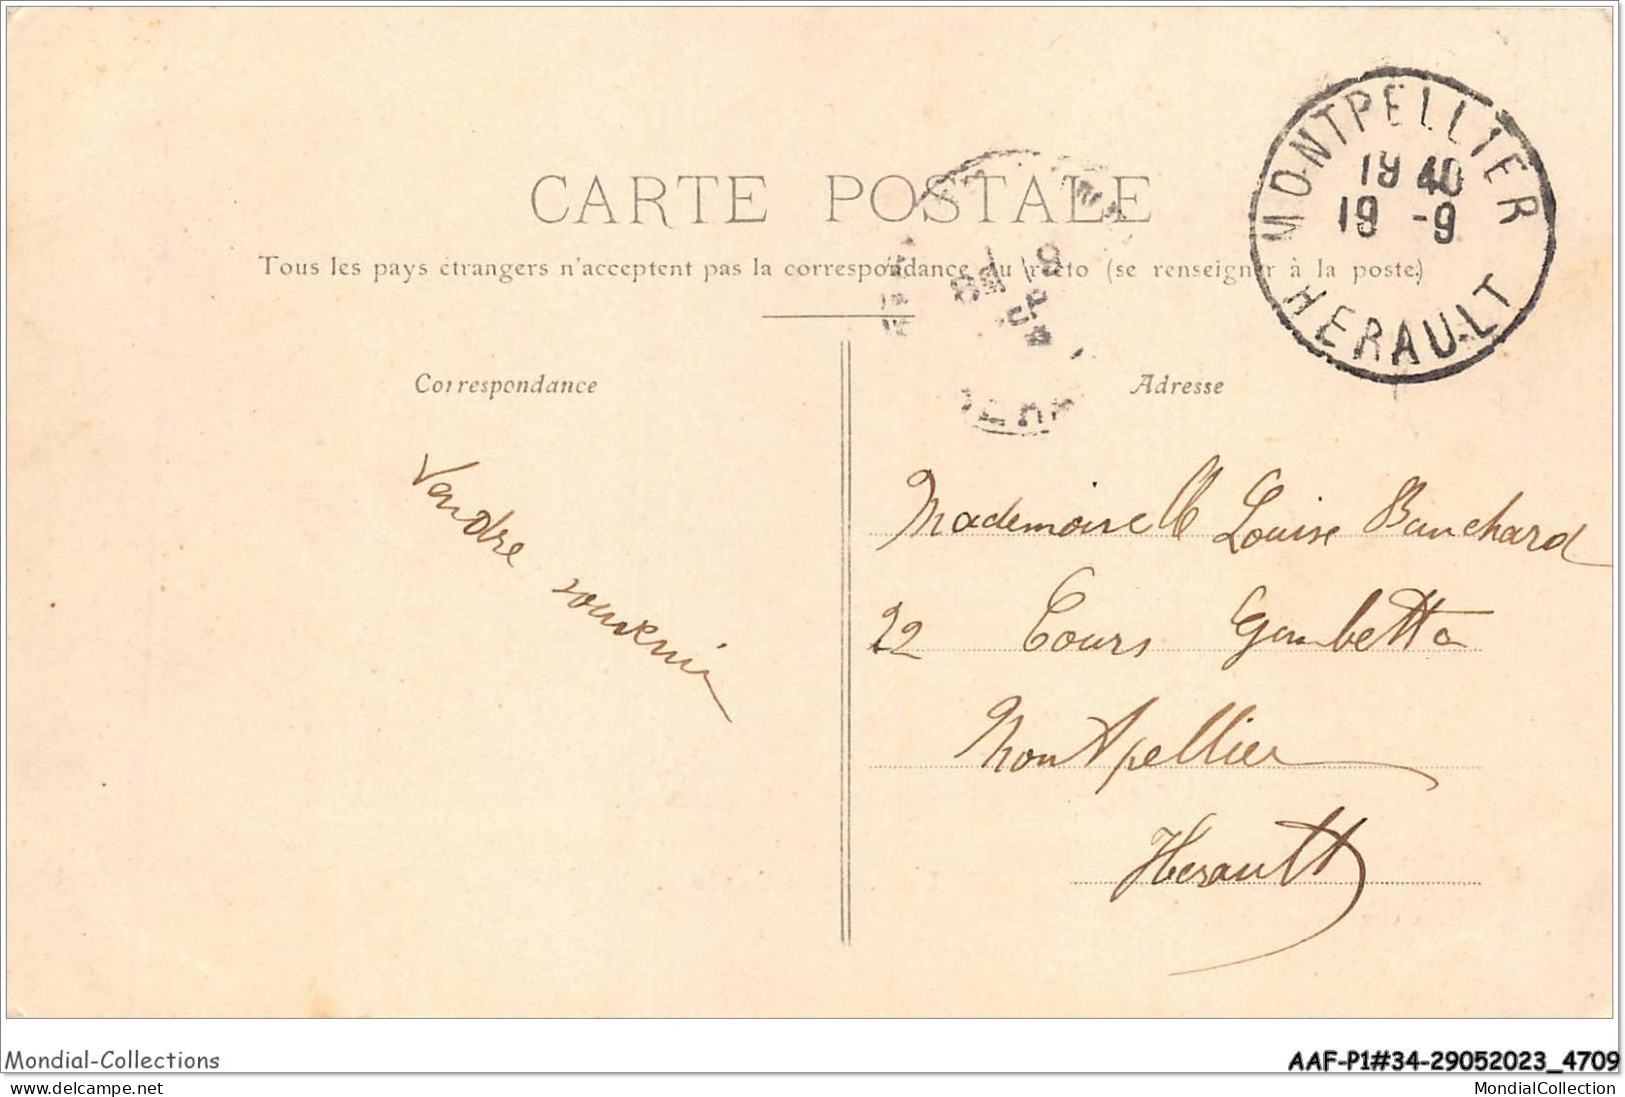 MONTPELLIER
19 40
19 -9
HERAULT
CARTE POSTALE
Tous les pays étrangers n'acceptent pas la correspondance au recto (se renseigner à la poste.)
Correspondance
Adresse
Tendre
souvenir
Mademoiselle Louise Banchard
22 Cours Gambetta
Montpellier
Herault
Mondial-Collections
www.delcampe.net
AAF-P1#34-29052023_4709
MondialCollection